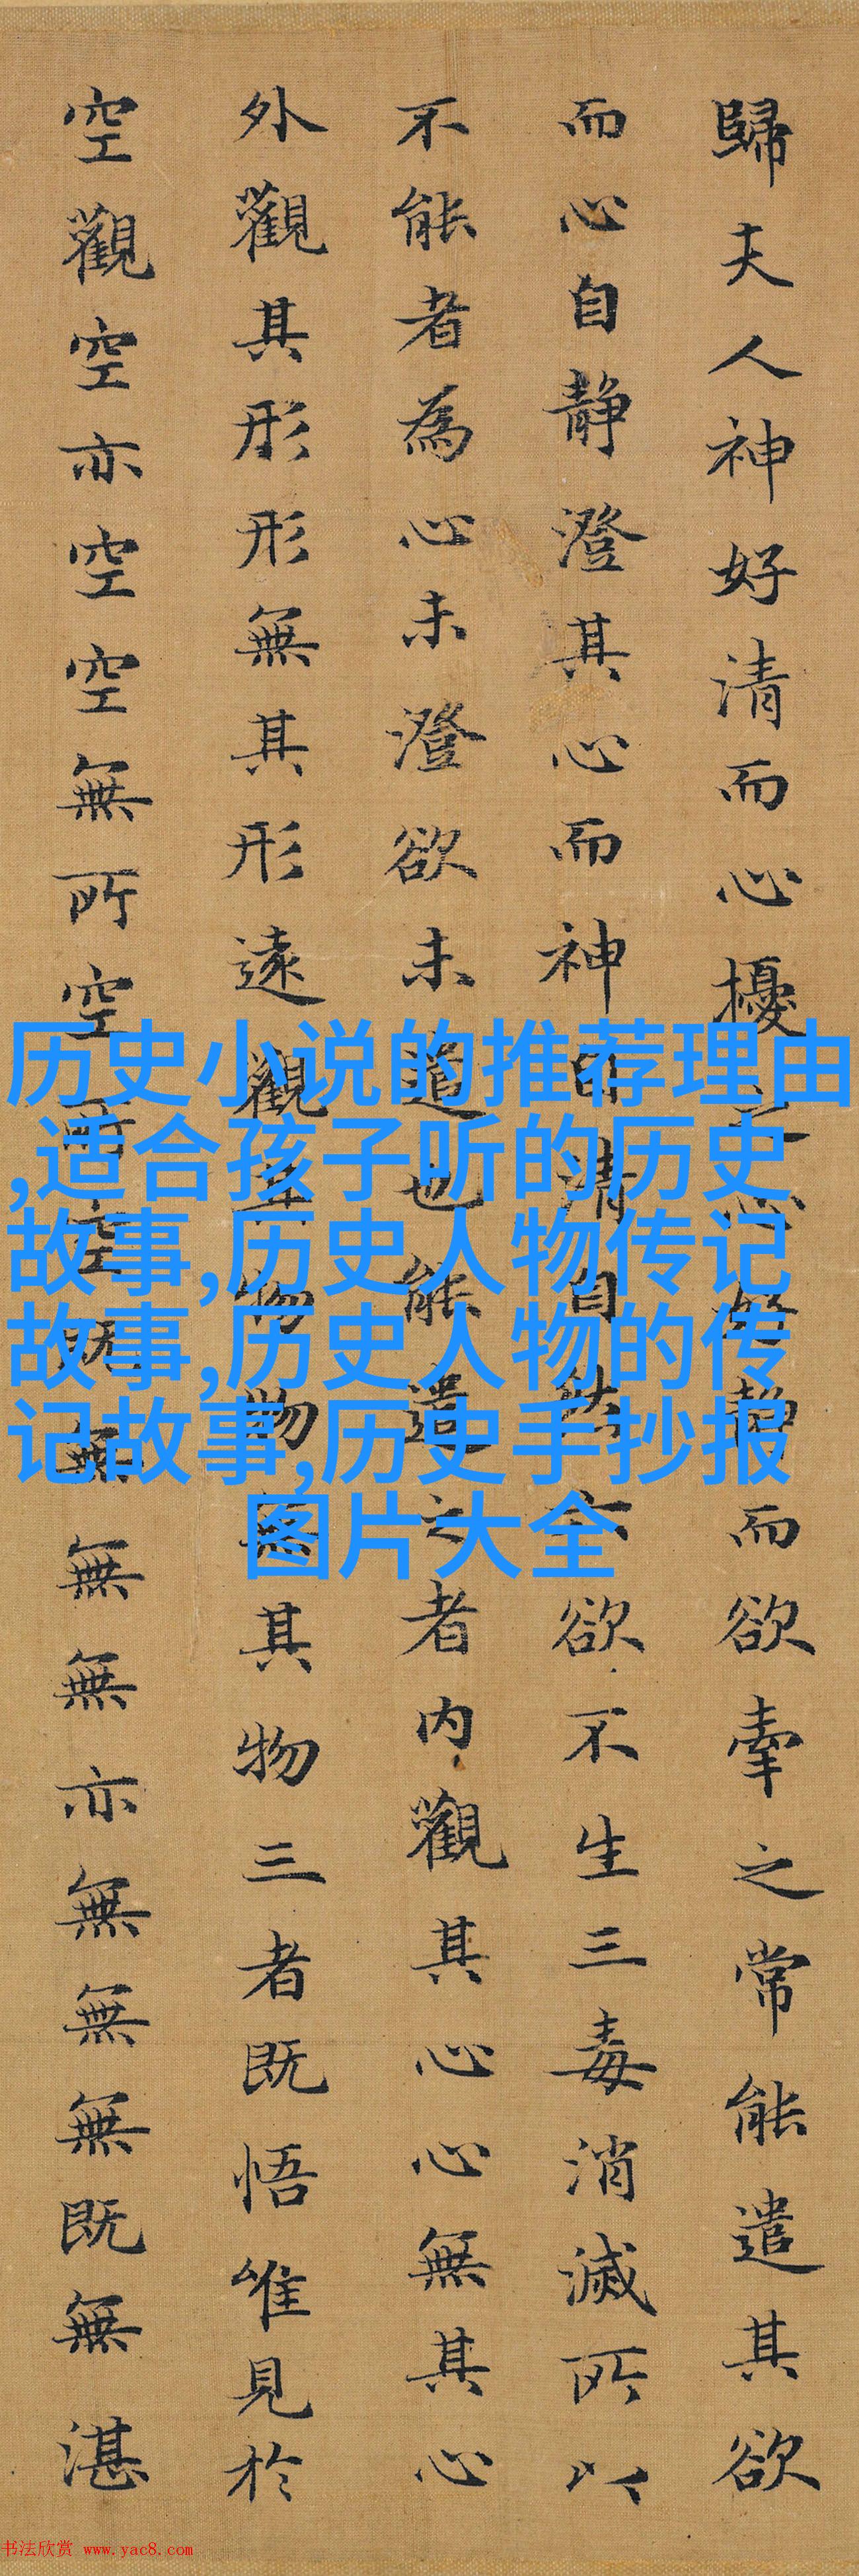 歸夫人神好清而心擾之心好靜而欲牽之常能遣其欲
而心自靜澄其心而神自清自然六欲不生三毒消滅所以
不能者為心未澄欲未遣也能遣之者内觀其心心無其心
外觀其形形無其形遠觀其物物無其物三者既悟唯見於
空觀空亦空空無所空所空既無無無亦無無無既無湛
历史小说的推荐理由
,适合孩子听的历史
故事,历史人物传记
故事,历史人物的传
记故事,历史手抄报
图片大全
书法欣赏 www.yac8.com